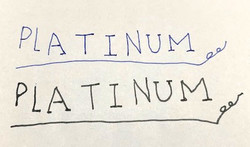 PLATINUM
PLATINUM